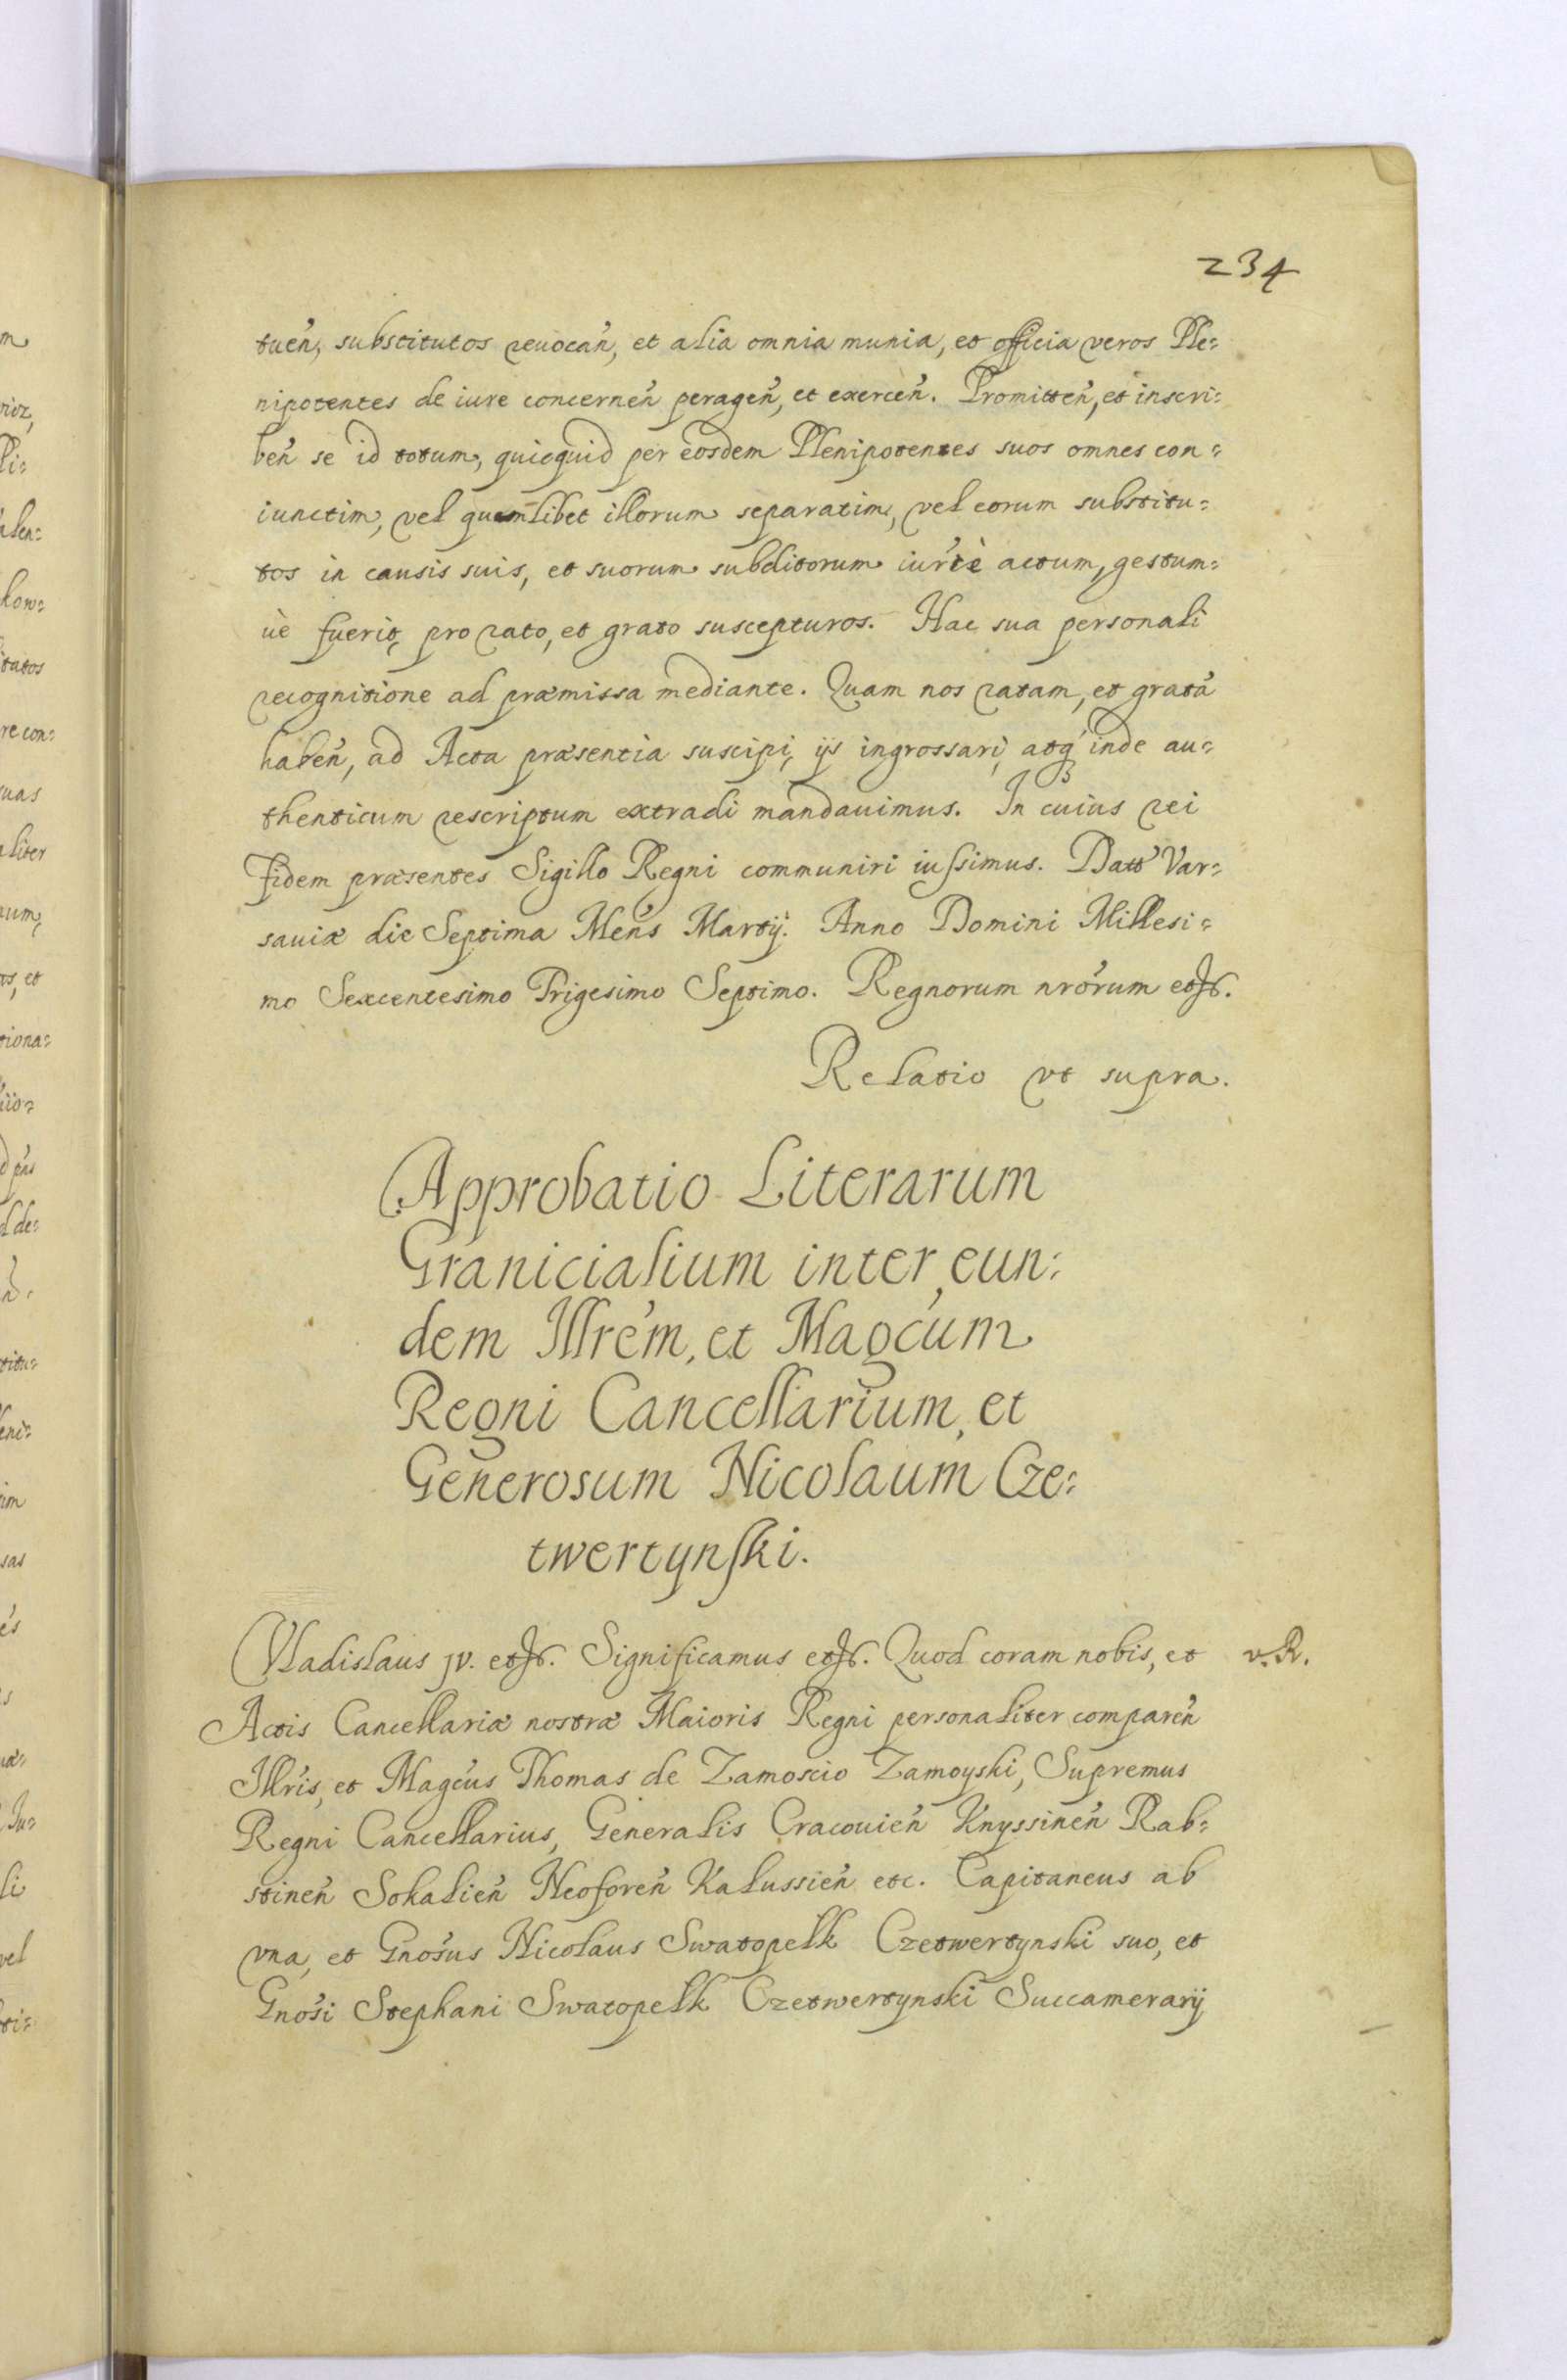 234
tuen̄, substitutos reuocan̄, et alia omnia munia, et officia veros Ple=
nipotentes de iure concernen̄ peragen̄, et exercen̄. Promitten̄, et inscri=
ben̄ se id totum, quicquid per eosdem Plenipotentes suos omnes con=
iunctim, vel quemlibet illorum separatim, vel eorum substitu=
tos in causis suis, et suorum subditorum iur̄tè actum, gestum=
uè fuerit, pro rato, et grato suscepturos. Hac sua personali
recognitione ad præmissa mediante. Quam nos ratam, et gratā
haben̄, ad Acta præsentia suscipi, ijs ingrossari, atq3 inde au=
thenticum rescriptum extradi mandauimus. In cuius rei
fidem præsentes Sigillo Regni communiri iussimus. Datt Var=
sauiæ die Septima Men̄s Martij. Anno Domini Millesi=
mo Sexcentesimo Trigesimo Septimo. Regnorum nr̄orum etc.
Relatio vt supra.
Approbatio Literarum
Granicialium inter eun=
dem Illrem̄, et Magcum̄
Regni Cancellarium, et
Generosum Nicolaum Cze=
twertynski.
Vladislaus IV. etc. Significamus etc. Quod coram nobis, et v. R.
Actis Cancellariæ nostræ Maioris Regni personaliter comparen̄
Illr̄is, et Magc̄us Thomas de Zamoscio Zamoyski, Supremus
Regni Cancellarius, Generalis Cracouien̄ Knyssinen̄ Rab=
stinen̄ Sokalien̄ Neoforen̄ Kalussien̄ etc. Capitaneus ab
vna, et Gnos̄us Nicolaus Swatopelk Czetwertynski suo, et
Gnos̄i Stephani Swatopelk Czetwertynski Succamerarij